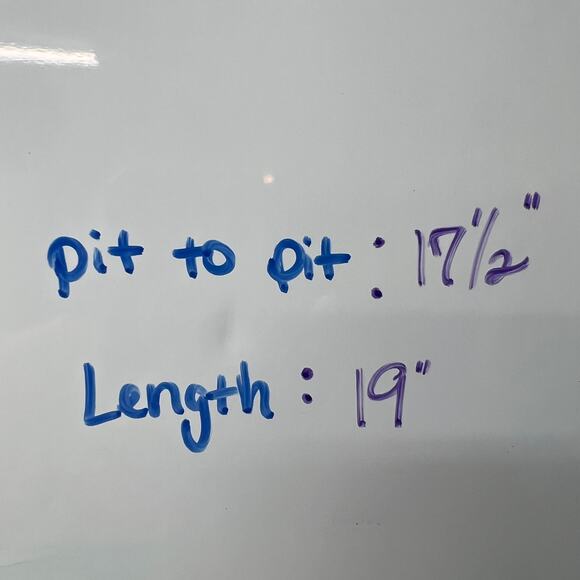 pit to pit : 17 1/2"
Length : 19"